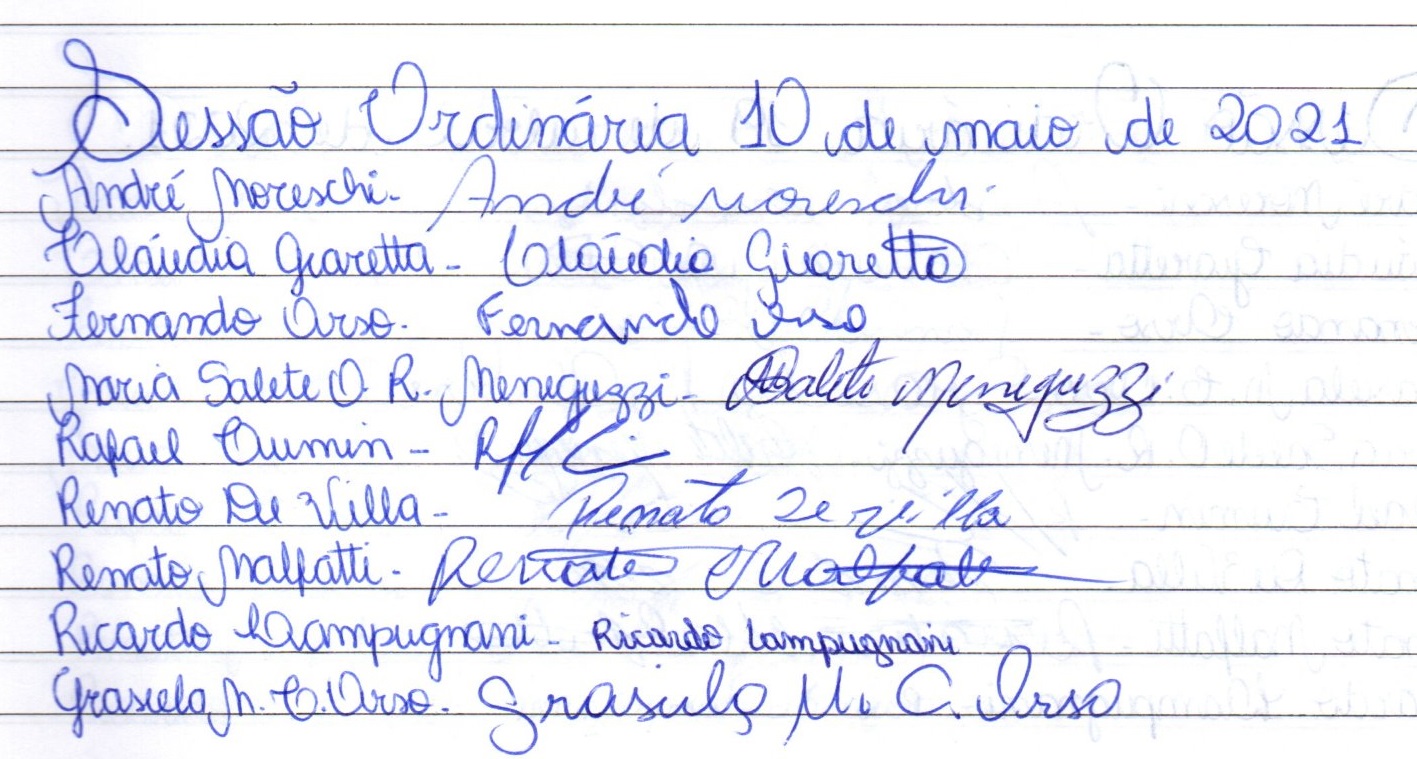 Sessão Ordinária 10 de maio de 2021
André Moreschi - André Moreschi
Claúdia Giaretta - Claúdia Giaretta
Fernando Orso - Fernando Orso
Maria Salete O. R. Meneguzzi - Salete Meneguzzi
Rafael Cumin -
Renato De Villa - Renato De Villa
Renato Malfatti - Renato Malfatti
Ricardo Lampugnani - Ricardo Lampugnani
Grasiela M. C. Orso - Grasiela M. C. Orso